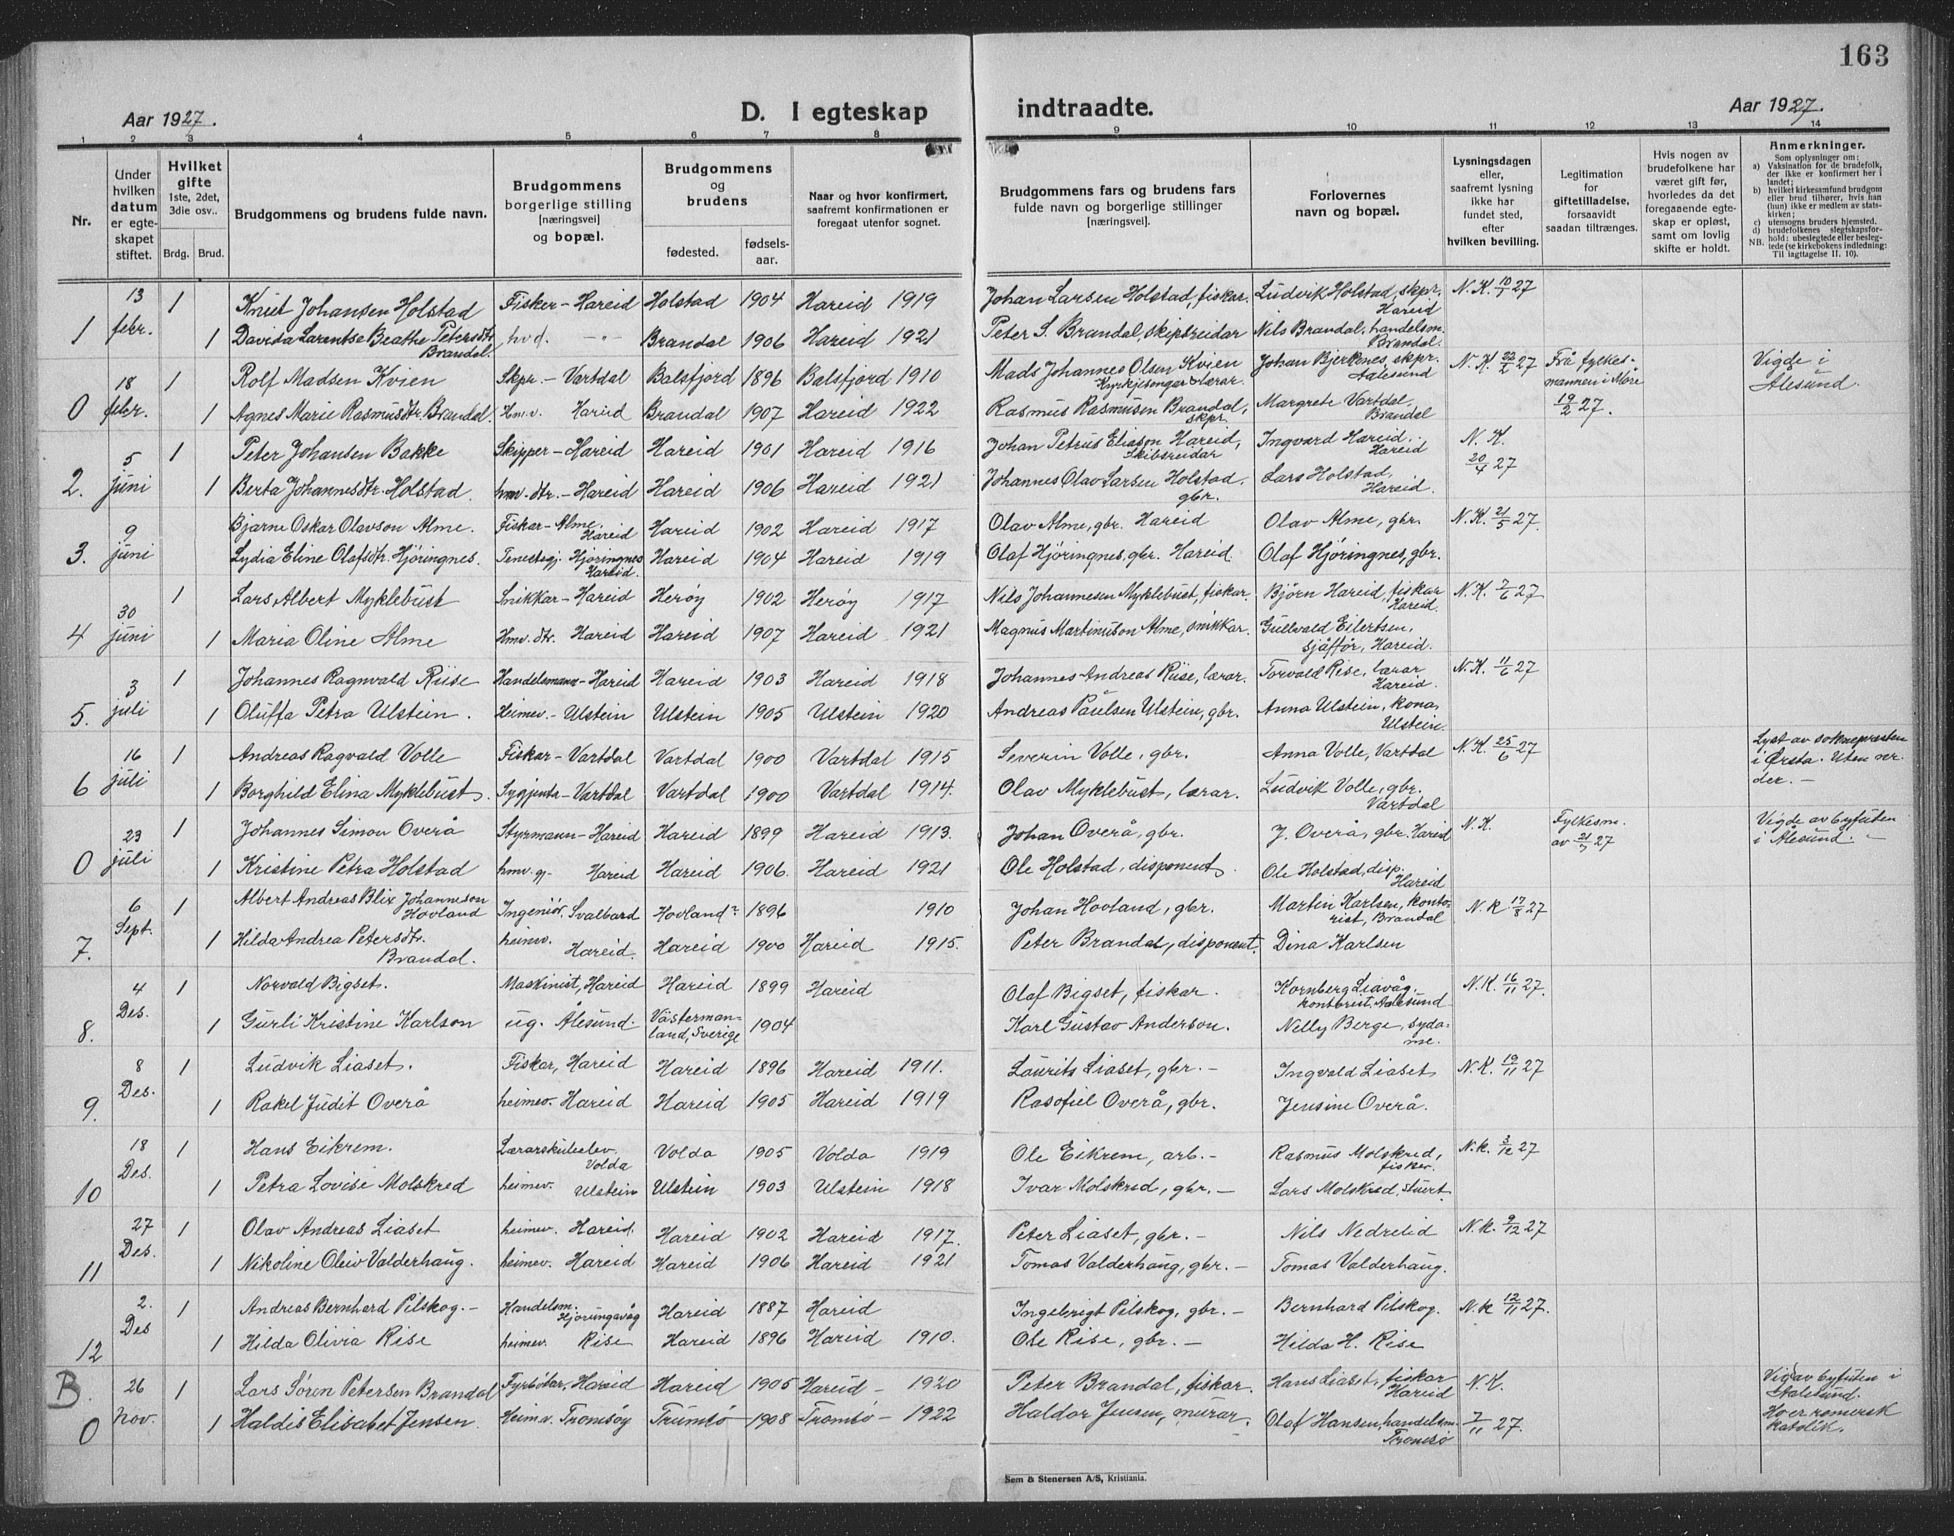 163
Aar 1927.
D. I egteskap
indtraadte.
Aar 1927.
1 2 3 4 5 6 7 8 9 10 11 12 13 14
Nr.
Under hvilken datum er egteskapet stiftet.
Hvilket gifte 1ste, 2det, 3die osv..
Brdg. Brud.
Brudgommens og brudens fulde navn.
Brudgommens borgerlige stilling [næringsvei] og bopæl.
Brudgommens og brudens
fødested.
fødselsaar.
Naar og hvor konfirmert, saafremt konfirmationen er foregaat utenfor sognet.
Brudgommens fars og brudens fars fulde navn og borgerlige stillinger [næringsvei].
Forlovernes navn og bopæl.
Lysningsdagen eller, saafremt lysning ikke har fundet sted, efter hvilken bevilling.
Legitimation for giftetilladelse, forsaavidt saadan tiltrænges.
Hvis nogen av brudefolkene har været gift før, hvorledes da det foregaaende egteskap er opløst, samt om lovlig skifte er holdt.
Anmerkninger.
Som oplysninger om:
a) Vaksination for de brudefolk, der ikke er konfirmert her i landet;
b) hvilket kirkesamfund brudgom eller brud tilhører, hvis han (hun) ikke er medlem av statskirken;
c) utensogns bruders hjemsted.
d) brudefolkenes slegtskapsforhold: ubeslegtede eller beslegtede (se kirkebokens indledning:
NB. Til iagttagelse II. 10).
13 1 Knut Johansen Holstad Fisker - Hareid Holstad 1904 Hareid 1919 Johan Larsen Holstad, fiskar. Ludvik Holstad, skpr. Hareid N.K. 10/1 27
1 febr. 1 Davida Larentse Beathe Petersdtr. Brandal hvd. - " - Brandal 1906 Hareid 1921 Peter S. Brandal, skipsreidar Nils Brandal, handelsm. Brandal.
18 1 Rolf Madsen Kvien Skpr. - Vartdal Balsfjord 1896 Balsfjord 1910 Mads Johannes Olsen Kvien Kyrkjesongar & lærar. Johan Bjerknes, skpr. Aalesund N.K. 22/2 27 Frå fylkesmannen i Møre 19/2 27. Vigde i Ålesund.
0 febr. 1 Agnes Marie Rasmusdtr. Brandal. Hmv. Hareid Brandal 1907 Hareid 1922 Rasmus Rasmusen Brandal, skpr. Margrete Vartdal, Brandal
5 1 Peter Johansen Bakke Skipper - Hareid Hareid 1901 Hareid 1916 Johan Petrus Eliasen Hareid, Skibsreidar Ingvard Hareid. Hareid N.K. 20/4 27
2. juni 1 Berta Johannesdtr. Holstad. hmv. dtr. - Hareid Hareid 1906 Hareid 1921 Johannes Olav Larsen Holstad. gbr. Lars Holstad, Hareid.
9 Bjarne Oskar Olavson Alme. Fiskar - Alme. Hareid Hareid 1902 Hareid 1917 Olav Alme, gbr. Hareid Olav Alme, gbr. N.K. 21/5 27.
3. juni Lydia Eline Olafsdtr. Hjøringnes. Tenestegj. Hjøringnes Hareid. Hareid 1904 Hareid 1919 Olaf Hjøringnes, gbr. Hareid Olaf Hjøringnes, gbr.
30 1 Lars Albert Myklebust Snikkar - Hareid Herøy 1902 Herøy 1917 Nils Johannesen Myklebust, fiskar. Bjørn Hareid, fiskar Hareid. N.K. 7/6 27
4 juni 1 Maria Oline Alme Hmv. dtr. Hareid Hareid 1907 Hareid 1921 Magnus Martinuson Alme, snikkar. Gullvald Eilertsen, sjåffør, Hareid.
3 1 Johannes Ragnvald Riise Handelsmann - Hareid Hareid 1903 Hareid 1918 Johannes Andreas Riise, lærar. Torvald Rise, lærar Hareid. N.K. 11/6 27
5. juli 1 Oluffa Petra Ulstein. Heimev. - Ulstein Ulstein 1905 Ulstein 1920 Andreas Paulsen Ulstein, gbr. Anna Ulstein, kona, Ulstein.
16 1 Andreas Ragvald Volle Fiskar - Vartdal Vartdal 1900 Vartdal 1915 Severin Volle, gbr. Anna Volle, Vartdal N.K. 25/6 27 Lyst av soknepresten i Ørsta. Uten
6 juli 1 Borghild Elina Myklebust. Sygjenta - Vartdal Vartdal 1900 Vartdal 1914. Olav Myklebust, lærar. Ludvik Volle, gbr. Vartdal
23 1 Johannes Simon Overå Styrmann - Hareid Hareid 1899 Hareid 1913. Johan Overå, gbr. J. Overå, gbr. Hareid N.K. Fylkesm. av 21/7 27 Vigde av byfuten i Ålesund. -
0 juli 1 Kristine Petra Holstad hmv. gj. Hareid Hareid 1906. Hareid 1921 Ole Holstad, disponent. Ole Holstad, disp. Hareid
6 1 Albert Andreas Blix Johanneson Hovland Ingeniør, Svalbard Hovland 1896 1910 Johan Hovland, gbr. Martin Karlsen, kontorist, Brandal N.K. 17/8 27
7. Sept. 1 Hilda Andrea Petersdtr. Brandal. heimv. Hareid. Hareid 1900 Hareid 1915. Peter Brandal, disponent. Dina Karlsen
4 1 Norvald Bigset. Maskinist, Hareid Hareid 1899 Hareid Olaf Bigset, fiskar. Kornberg Liavåg, kontorist, Aalesund N.K. 16/11 27.
8. Des. 1 Gurli Kristine Karlson ug. Ålesund. Västermanland, Sverige 1904 Karl Gustav Anderson. Nelly Berge, sydame.
8 1 Ludvik Liaset. Fiskar, Hareid Hareid 1896 Hareid 1911. Laurits Liaset, gbr. - Ingvald Liaset N.K. 19/11 27
9. Des. 1 Rakel Judit Overå heimev. Hareid Hareid 1905 Hareid 1919 Rasofiel Overå, gbr. Jensine Overå.
18 1 Hans Eikrem. Lærarskuleelev. Volda Volda 1905 Volda 1919 Ole Eikrem, arb. - Rasmus Molskred, fisker. N.K. 3/12 27
10 Des. 1 Petra Lovise Molskred heimev. Ulstein Ulstein 1903 Ulstein 1918 Ivar Molskred, gbr. - Lars Molskred, stuert
27 1 Olav Andreas Liaset heimev. Hareid. Hareid 1902 Hareid 1917. Peter Liaset, gbr. - Nils Nedrelid N.K. 9/12 27
11 Des. 1 Nikoline Oleiv Valderhaug. heimev. Hareid Hareid 1906 Hareid 1921 Tomas Valderhaug, gbr. - Tomas Valderhaug.
2. 1 Andreas Bernhard Pilskog. - Handelsm. Hjørungavåg Hareid 1887 Hareid Ingebrigt Pilskog, gbr. - Bernhard Pilskog. N.K. 12/11 27.
12 Des 1 Hilda Olivia Rise heimev. Rise Hareid 1896 Hareid 1910. Ole Rise, gbr. - Hilda H. Rise
B. 26 1 Lars Søren Petersen Brandal Fyrbøtar, Hareid Hareid 1905 Hareid - 1920 Peter Brandal, fiskar. Hans Liaset, fiskar Hareid N.K. Vigd av byfuten i Aalesund. Ho er romersk katolik.
0 nov. 1 Haldis Elisabet Jensen. Heimv. Tromsøy Trumsø 1908 Tromsø - 1922 Haldor Jensen, murar. Olaf Hansen, handelsm. Tromsø 7/11 27.
Sem & Stenersen A/S, Kristiania.